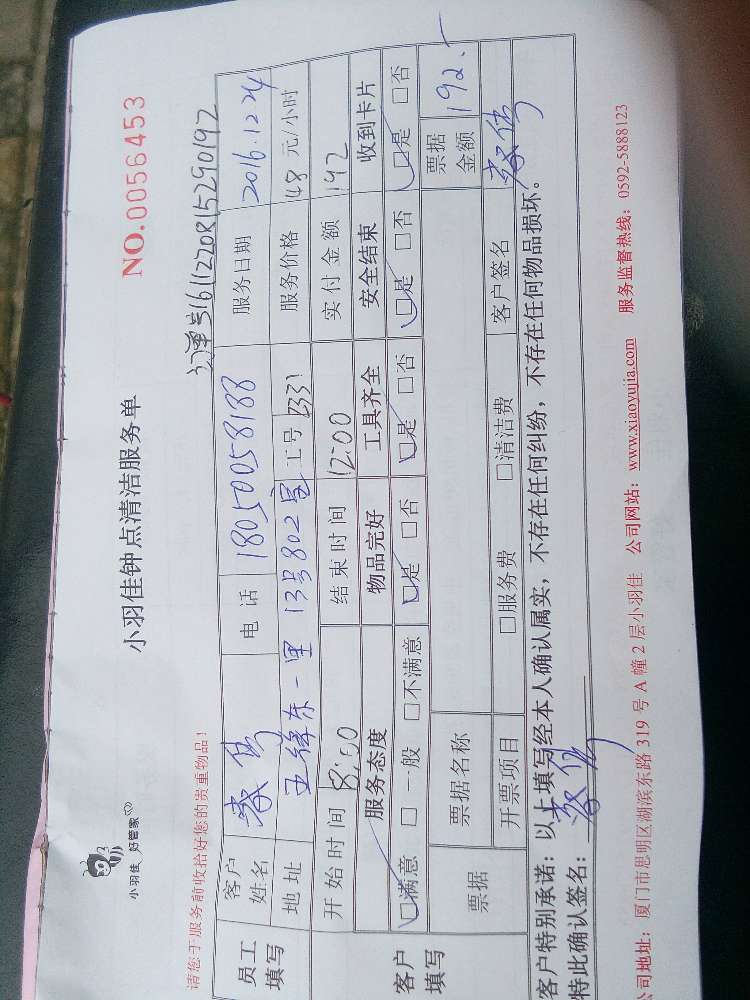 小羽佳 好管家
小羽佳钟点清洁服务单
NO.0056453
请您于服务前收拾好您的贵重物品!
订单号1611220815290192
员工填写 客户姓名 电话 18050058188 服务日期 2016.12.24
地址 13号802室 工号 服务价格 48元/小时
客户填写 开始时间 8:00 结束时间 12:00 实付金额 192
服务态度 物品完好 工具齐全 安全结束 收到卡片
□满意 □一般 □不满意 □是 □否 □是 □否 □是 □否 □是 □否
票据 票据名称 票据金额 192.-
开票项目 □服务费 □清洁费 客户签名
客户特别承诺:以上填写经本人确认属实,不存在任何纠纷,不存在任何物品损坏。
特此确认签名:
公司地址:厦门市思明区湖滨东路 319 号 A 幢 2 层小羽佳 公司网站:www.xiaoyujia.com 服务监督热线:0592-5888123